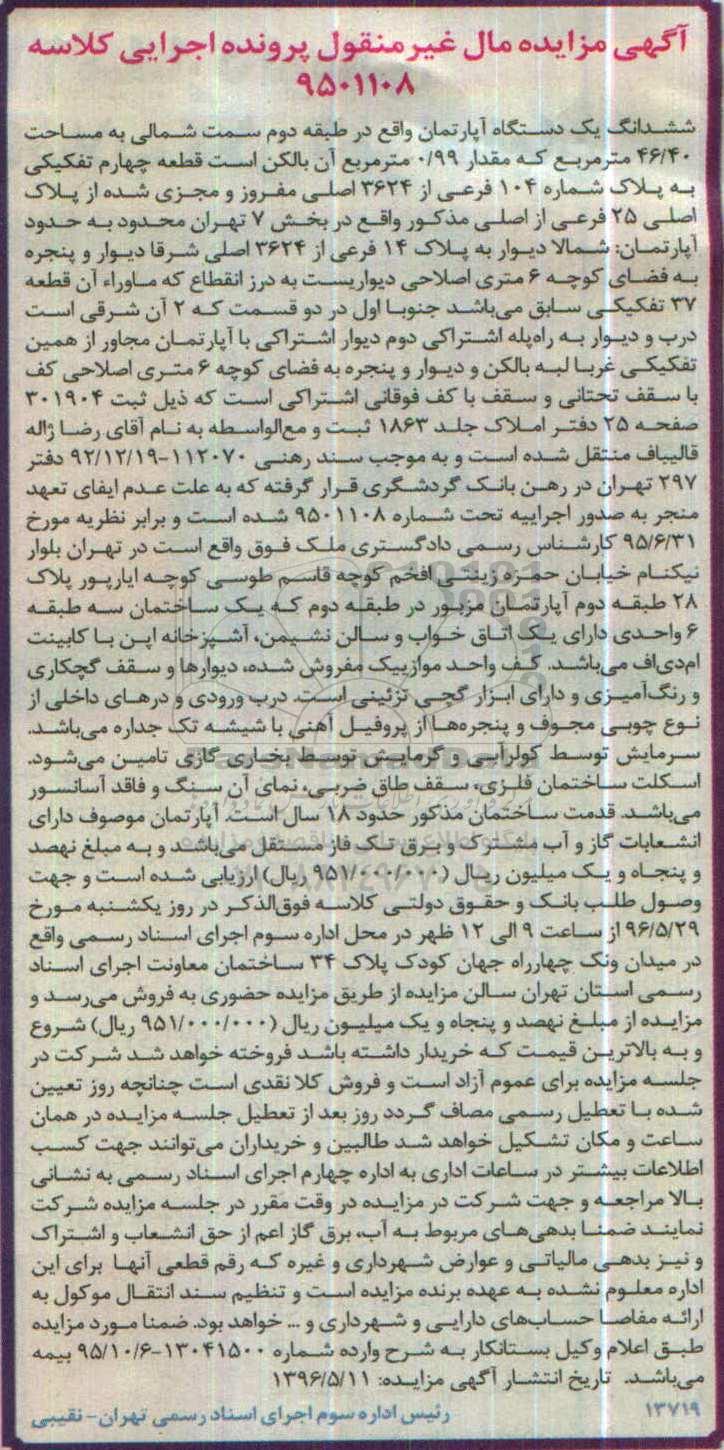 آگهی مزایده مال غیرمنقول پرونده اجرایی کلاسه
۹۵۰۱۱۰۸
ششدانگ یک دستگاه آپارتمان واقع در طبقه دوم سمت شمالی به مساحت
۴۶/۴۰ مترمربع که مقدار ۰/۹۹ مترمربع آن بالکن است قطعه چهارم تفکیکی
به پلاک شماره ۱۰۴ فرعی از ۳۶۲۴ اصلی مفروز و مجزی شده از پلاک
اصلی ۲۵ فرعی از اصلی مذکور واقع در بخش ۷ تهران محدود به حدود
آپارتمان: شمالا دیوار به پلاک ۱۴ فرعی از ۳۶۲۴ اصلی شرقا دیوار و پنجره
به فضای کوچه ۶ متری اصلاحی دیواریست به درز انقطاع که ماوراء آن قطعه
۳۷ تفکیکی سابق می‌باشد جنوبا اول در دو قسمت که ۲ آن شرقی است
درب و دیوار به راه‌پله اشتراکی دوم دیوار اشتراکی با آپارتمان مجاور از همین
تفکیکی غربا لبه بالکن و دیوار و پنجره به فضای کوچه ۶ متری اصلاحی کف
با سقف تحتانی و سقف با کف فوقانی اشتراکی است که ذیل ثبت ۳۰۱۹۰۴
صفحه ۲۵ دفتر املاک جلد ۱۸۶۳ ثبت و مع‌الواسطه به نام آقای رضا ژاله
قالیباف منتقل شده است و به موجب سند رهنی ۱۱۲۰۷۰-۹۲/۱۲/۱۹ دفتر
۲۹۷ تهران در رهن بانک گردشگری قرار گرفته که به علت عدم ایفای تعهد
منجر به صدور اجراییه تحت شماره ۹۵۰۱۱۰۸ شده است و برابر نظریه مورخ
۹۵/۶/۳۱ کارشناس رسمی دادگستری ملک فوق واقع است در تهران بلوار
نیکنام خیابان حمزه زینتی افخم کوچه قاسم طوسی کوچه ایارپور پلاک
۲۸ طبقه دوم آپارتمان مزبور در طبقه دوم که یک ساختمان سه طبقه
۶ واحدی دارای یک اتاق خواب و سالن نشیمن، آشپزخانه اپن با کابینت
ام‌دی‌اف می‌باشد. کف واحد موازییک مفروش شده، دیوارها و سقف گچکاری
و رنگ‌آمیزی و دارای ابزار گچی تزئینی است. درب ورودی و درهای داخلی از
نوع چوبی مجوف و پنجره‌ها از پروفیل آهنی با شیشه تک جداره می‌باشد.
سرمایش توسط کولرآبی و گرمایش توسط بخاری گازی تامین می‌شود.
اسکلت ساختمان فلزی، سقف طاق ضربی، نمای آن سنگ و فاقد آسانسور
می‌باشد. قدمت ساختمان مذکور حدود ۱۸ سال است. آپارتمان موصوف دارای
انشعابات گاز و آب مشترک و برق تک فاز مستقل می‌باشد و به مبلغ نهصد
و پنجاه و یک میلیون ریال (۹۵۱/۰۰۰/۰۰۰ ریال) ارزیابی شده است و جهت
وصول طلب بانک و حقوق دولتی کلاسه فوق‌الذکر در روز یکشنبه مورخ
۹۶/۵/۲۹ از ساعت ۹ الی ۱۲ ظهر در محل اداره سوم اجرای اسناد رسمی واقع
در میدان ونک چهارراه جهان کودک پلاک ۳۴ ساختمان معاونت اجرای اسناد
رسمی استان تهران سالن مزایده از طریق مزایده حضوری به فروش می‌رسد و
مزایده از مبلغ نهصد و پنجاه و یک میلیون ریال (۹۵۱/۰۰۰/۰۰۰ ریال) شروع
و به بالاترین قیمت که خریدار داشته باشد فروخته خواهد شد شرکت در
جلسه مزایده برای عموم آزاد است و فروش کلا نقدی است چنانچه روز تعیین
شده با تعطیل رسمی مصاف گردد روز بعد از تعطیل جلسه مزایده در همان
ساعت و مکان تشکیل خواهد شد طالبین و خریداران می‌توانند جهت کسب
اطلاعات بیشتر در ساعات اداری به اداره چهارم اجرای اسناد رسمی به نشانی
بالا مراجعه و جهت شرکت در مزایده در وقت مقرر در جلسه مزایده شرکت
نمایند ضمنا بدهی‌های مربوط به آب، برق گاز اعم از حق انشعاب و اشتراک
و نیز بدهی مالیاتی و عوارض شهرداری و غیره که رقم قطعی آنها برای این
اداره معلوم نشده به عهده برنده مزایده است و تنظیم سند انتقال موکول به
ارائه مفاصا حساب‌های دارایی و شهرداری و ... خواهد بود. ضمنا مورد مزایده
طبق اعلام وکیل بستانکار به شرح وارده شماره ۱۳۰۴۱۵۰۰-۹۵/۱۰/۶ بیمه
می‌باشد. تاریخ انتشار آگهی مزایده: ۱۳۹۶/۵/۱۱
۱۳۷۱۹ رئیس اداره سوم اجرای اسناد رسمی تهران- نقیبی